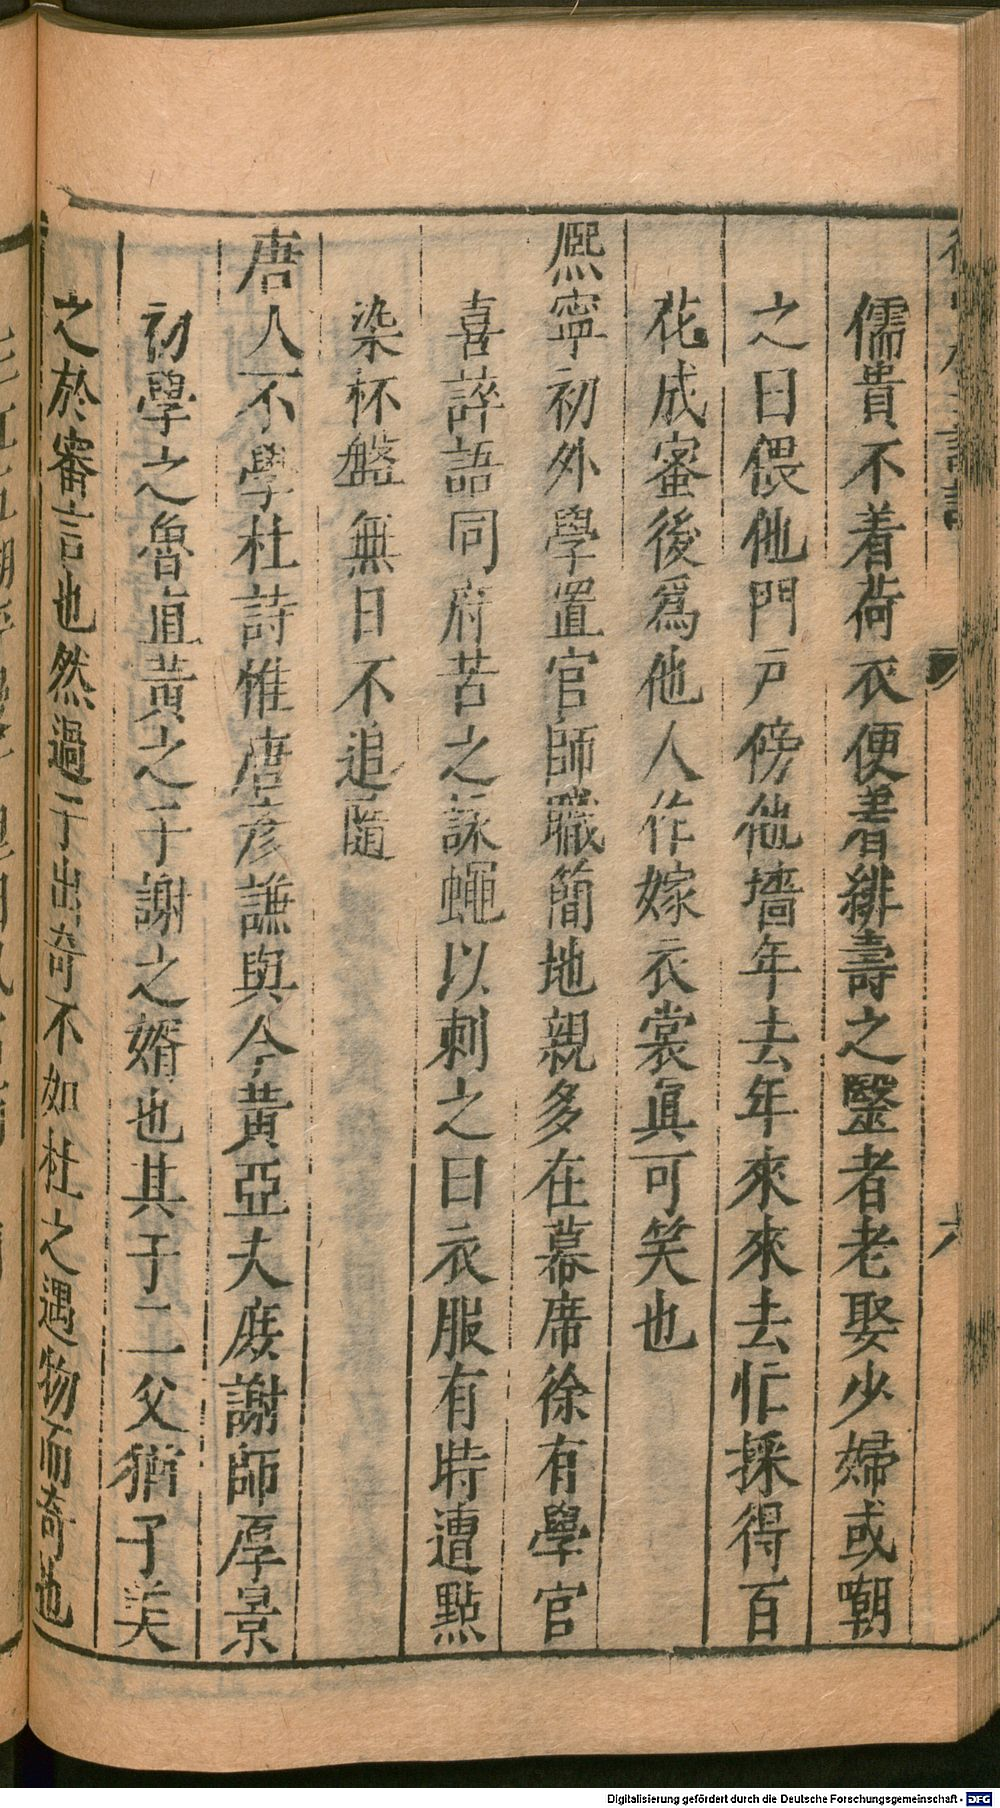 儒貴不着荷衣便着緋壽之毉者老娶少婦或嘲
之曰偎他門戶傍他墻年去年來來去忙採得百
花成蜜後爲他人作嫁衣裳眞可笑也
熈寧初外學置官師職簡地親多在幕席徐有學官
喜誶語同府苦之詠蠅以刺之曰衣服有時遭點
染杯盤無日不追隨
唐人不學杜詩惟唐彦謙與今黃亞夫庶謝師厚景
初學之魯直黃之子謝之婿也其于二父猶子美
之於審言也然過于出奇不如杜之遇物而奇也
六
Digitalisierung gefördert durch die Deutsche Forschungsgemeinschaft - DFG